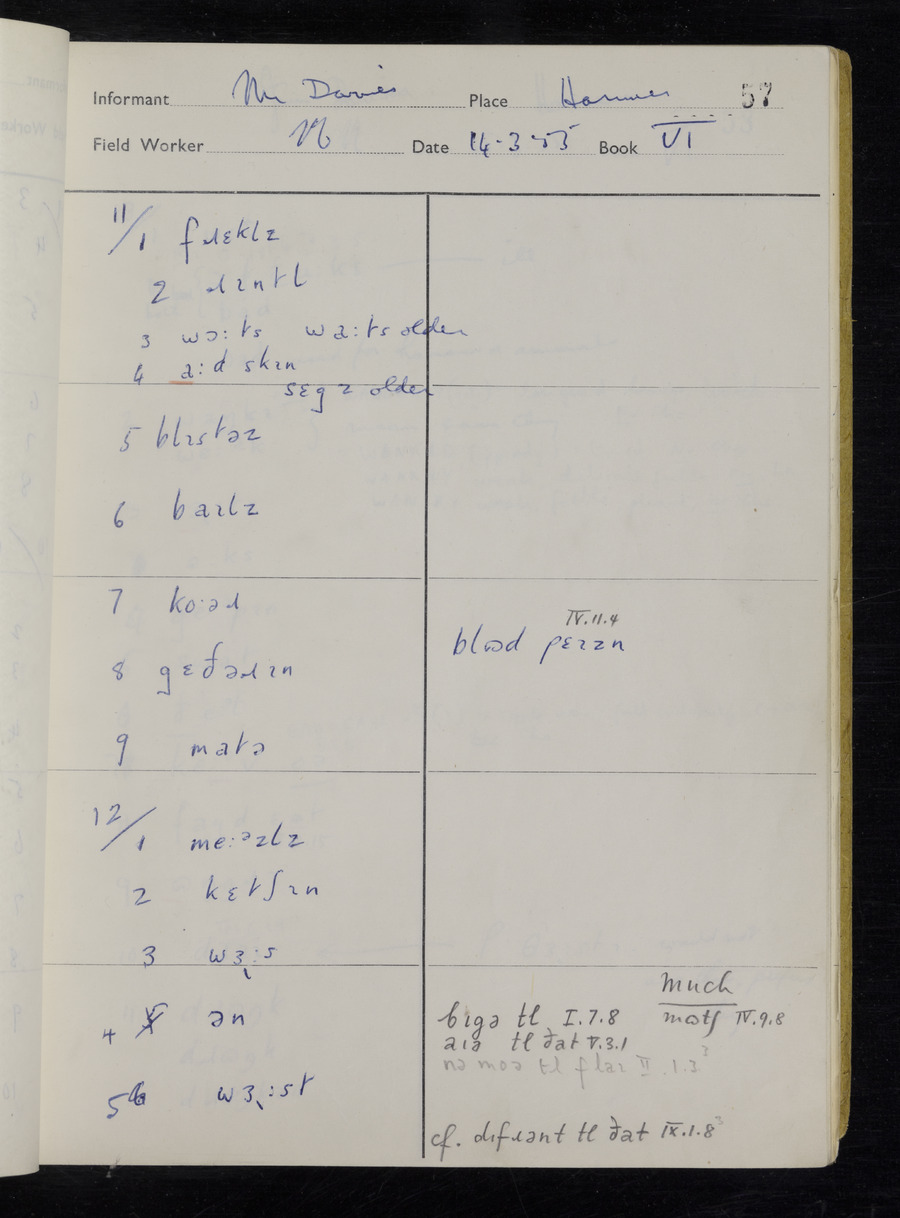 Informant Mr Davies Place Hanmer 57
Field Worker Date 14-3-55 Book VI
11/1 fɹɛklz
2 ɹɪntl
3 wɔ:ts wa:ts older
4 a:d skɪn
sɛgz older
5 blɪstəz
6 baɪlz
7 ko·əɹ
IV.11.4
blɷd pɛɪzn
8 gɛðəɹɪn
9 matə
12/1 me:ᵊzlz
2 kɛtʃɪn
3 wɜ˞:s
much
4 ən
bigə tl I.7.8 mɷtʃ IV.9.8
aɪə tl ðat V.3.1
nə moə tl flaɪ II.1.3³
5 wɜ˞:st
cf. dɪfɹənt tl ðat IX.1.8³